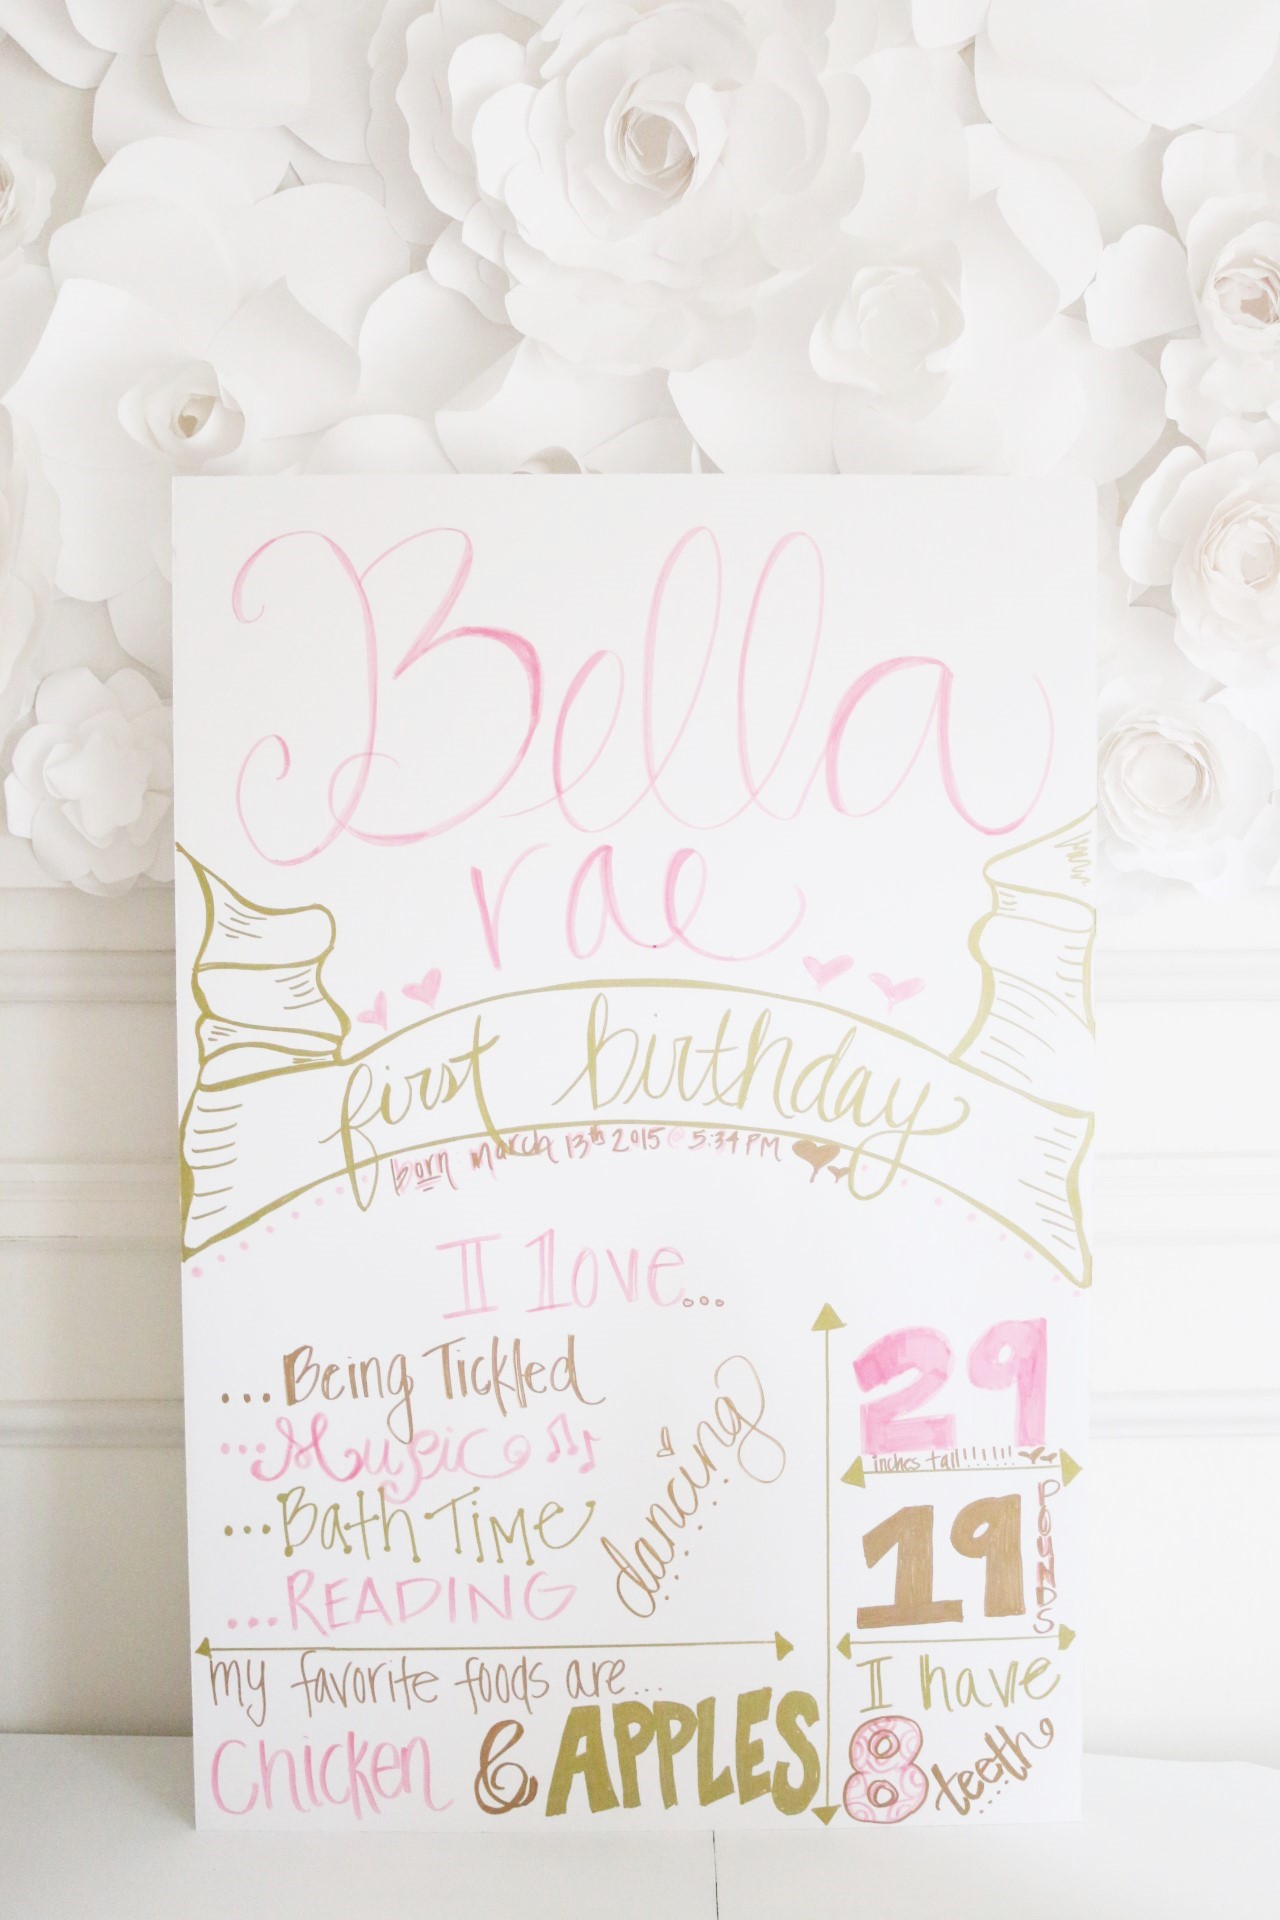 Bella
rae
first birthday
born march 13th 2015 @ 5:34 PM
I love...
...Being Tickled
...Music
...Bath Time
...READING
dancing
29
inches tall!!!!!!!
19 POUNDS
my favorite foods are...
Chicken & APPLES
I have
8 teeth